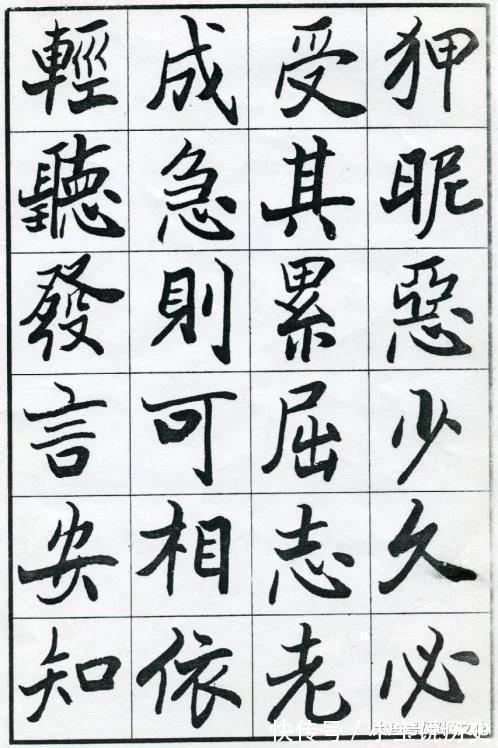 狎昵惡少久必
受其累屈志老
成急則可相依
輕聽發言安知
快传号/